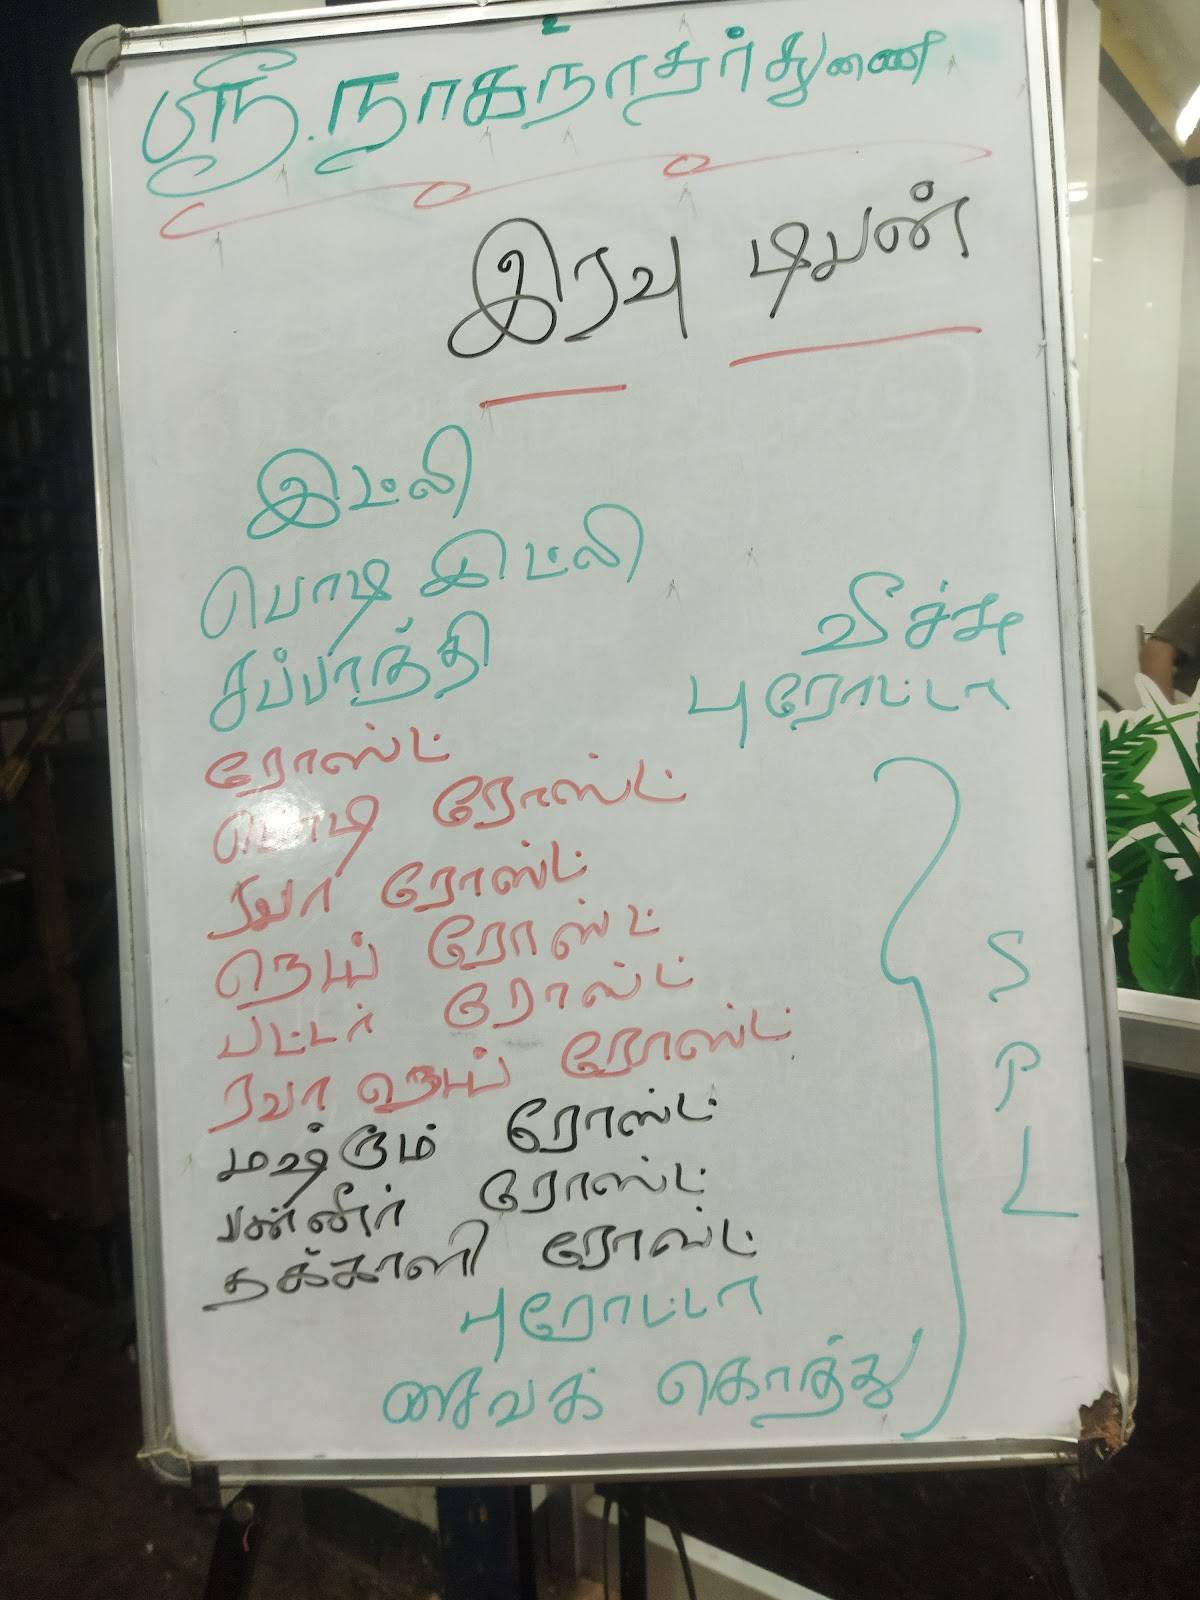 ஸ்ரீ.நாகநாதர்துணை
இரவு டிபன்
இட்லி
பொடி இட்லி
சப்பாத்தி
ரோஸ்ட்
பொடி ரோஸ்ட்
ரவா ரோஸ்ட்
நெய் ரோஸ்ட்
பட்டர் ரோஸ்ட்
ரவா நெய் ரோஸ்ட்
மஷ்ரூம் ரோஸ்ட்
பன்னீர் ரோஸ்ட்
தக்காளி ரோஸ்ட்
புரோட்டா
சைவக் கொத்து
வீச்சு
புரோட்டா
SPL